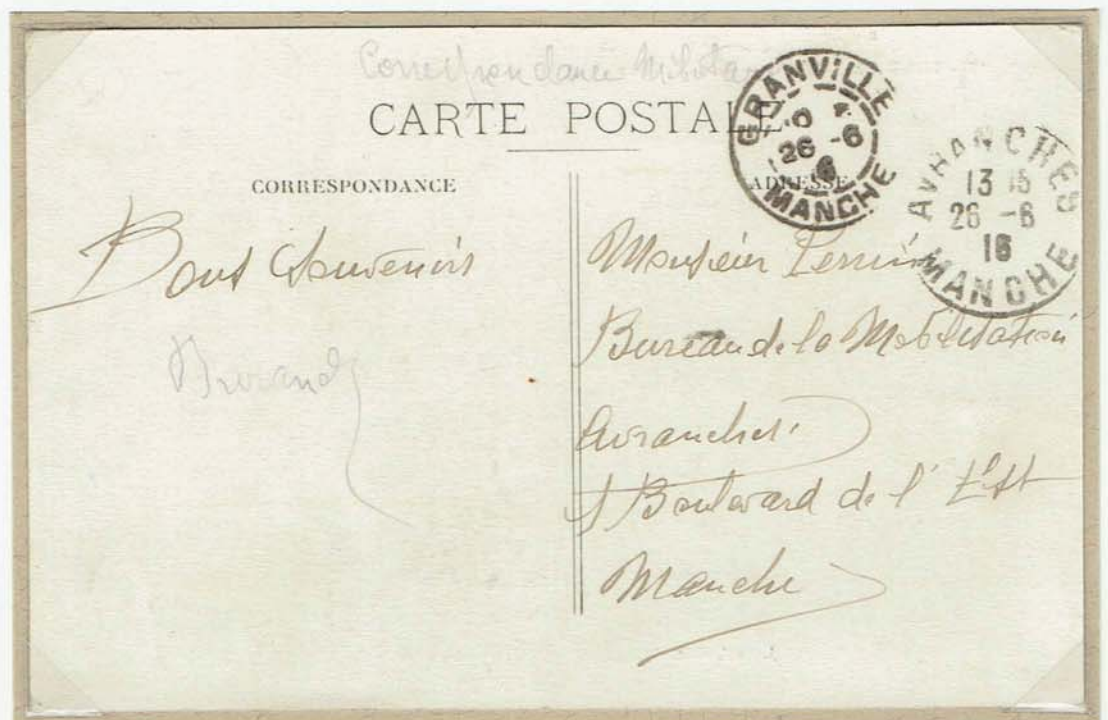 Correspondance Militaire
CARTE POSTALE
GRANVILLE
26 -6
MANCHE
AVRANCHES
13 15
26 -6
16
MANCHE
CORRESPONDANCE
ADRESSE
Bons Souvenirs
Durand
Monsieur Perrin
Bureau de la Mobilisation
Avranches
Boulevard de l'Est
Manche